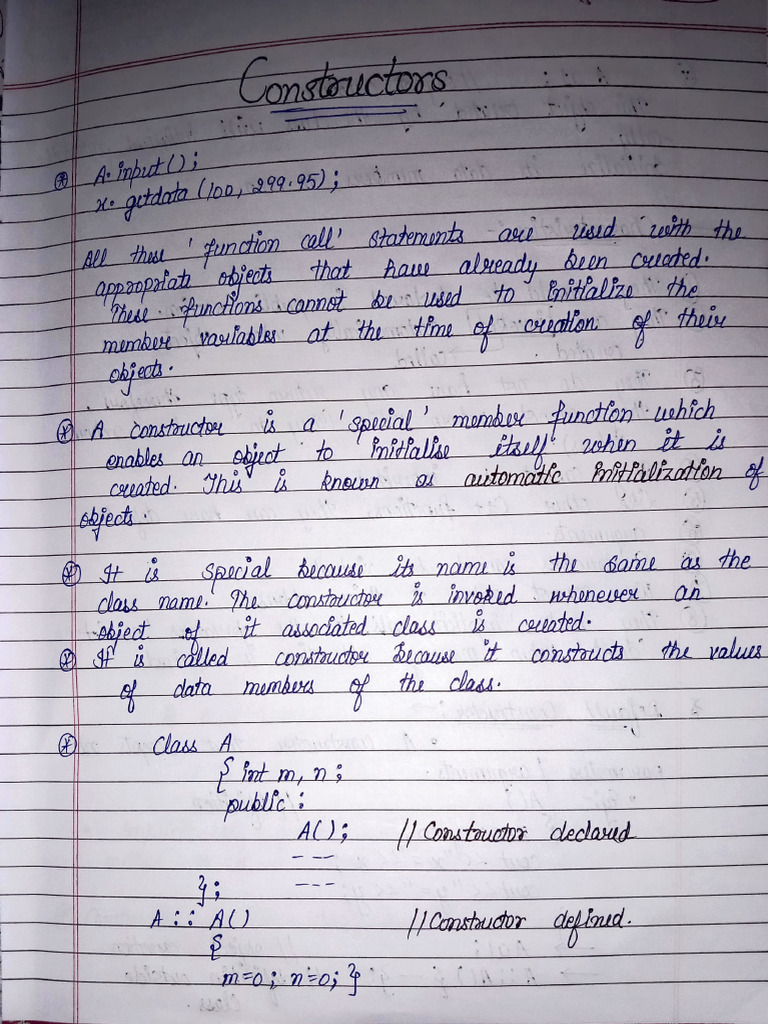 Constructors
* A.input();
x.getdata (100, 299.95);
All these 'function call' statements are used with the
appropriate objects that have already been created.
These functions cannot be used to initialize the
member variables at the time of creation of their
objects.
* A constructor is a 'special' member function which
enables an object to initialise itself when it is
created. This is known as automatic initialization of
objects.
* It is special because its name is the same as the
class name. The constructor is invoked whenever an
object of it associated class is created.
* It is called constructor because it constructs the values
of data members of the class.
* Class A
{ int m, n;
public:
A(); // Constructor declared
---
}; ---
A :: A() // Constructor defined.
{
m=0; n=0; }